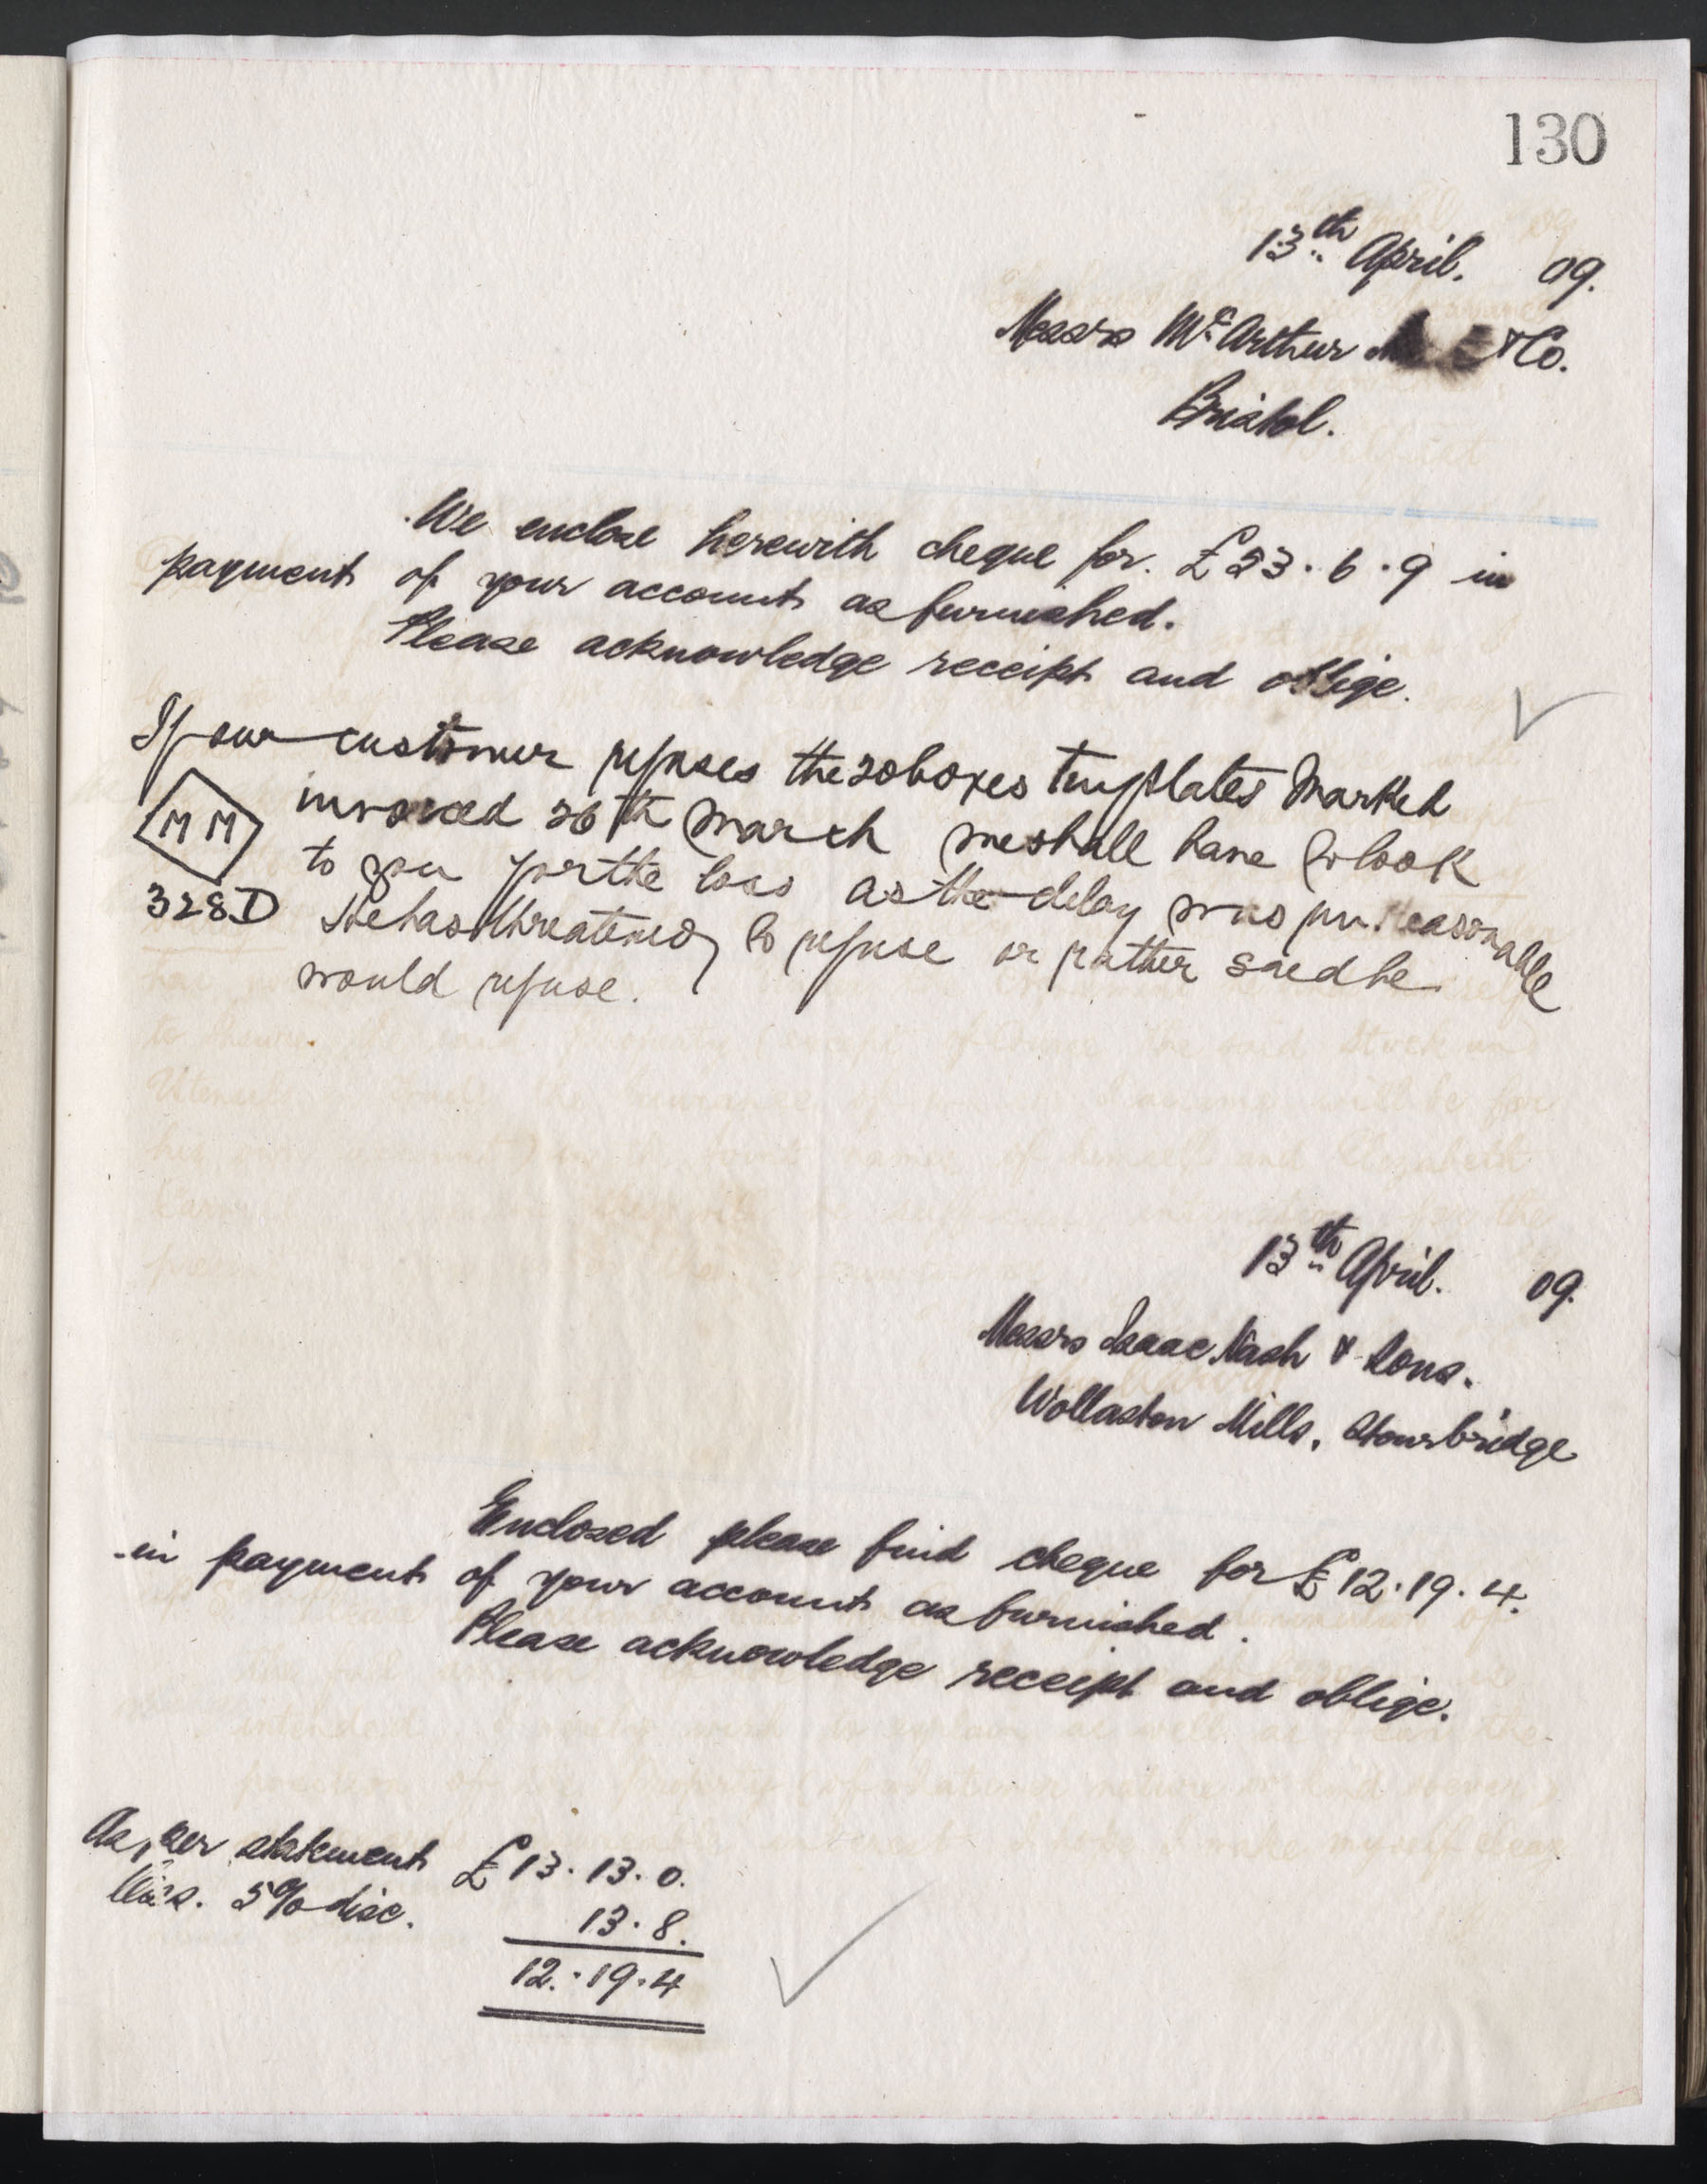 130
13th April. 09.
Messrs McArthur & Co.
Bristol.
We enclose herewith cheque for. £23.6.9 in
payment of your account as furnished.
Please acknowledge receipt and oblige.
If our customer refuses the 20 boxes Tinplates Marked
MM invoiced 26th March we shall have to look
to you for the loss as the delay was unreasonable
328D He has threatened to refuse or rather said he
would refuse.
13th April. 09.
Messrs Isaac Nash & Sons.
Wollaston Mills, Stourbridge
Enclosed please find cheque for £12.19.4.
in payment of your account as furnished.
Please acknowledge receipt and oblige.
As per statement £13.13.0.
Less. 5% disc. 13.8.
12.19.4